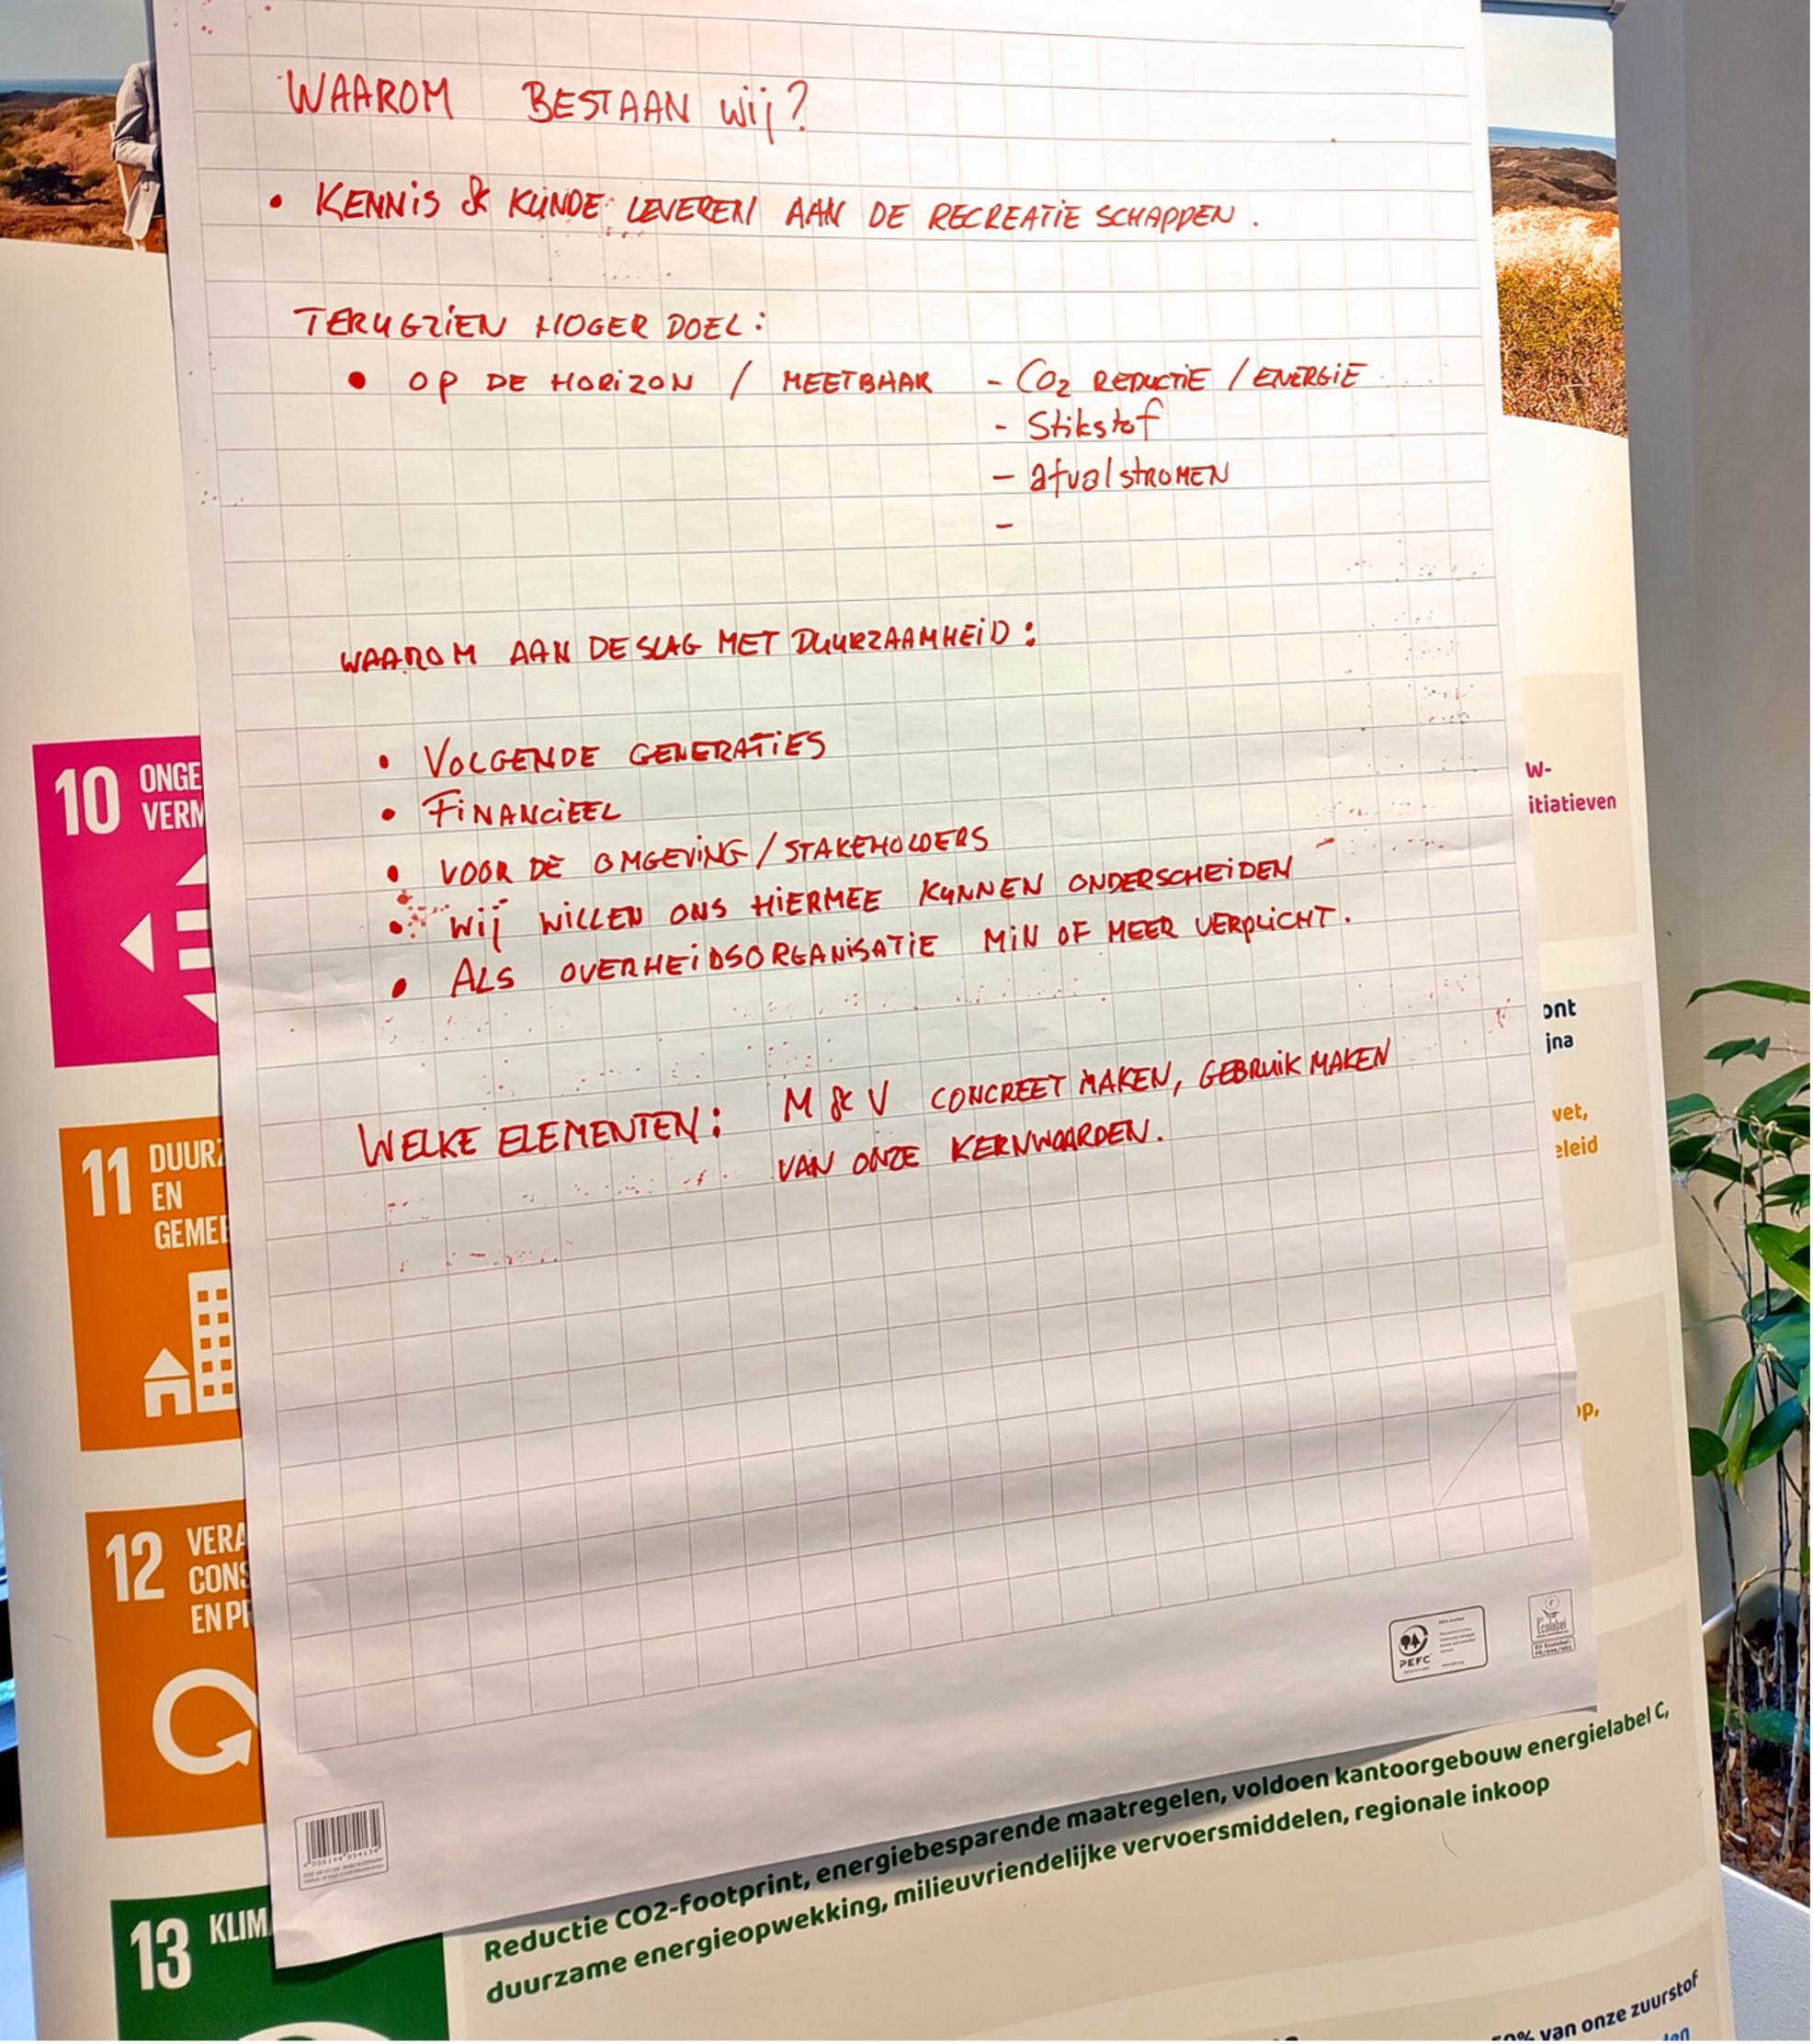 WAAROM BESTAAN wij?
• KENNIS & KUNDE LEVEREN AAN DE RECREATIESCHAPPEN.
TERUGZIEN HOGER DOEL:
• OP DE HORIZON / MEETBAAR - CO2 REDUCTIE / ENERGIE
- Stikstof
- afvalstromen
-
WAAROM AAN DE SLAG MET DUURZAAMHEID:
• VOLGENDE GENERATIES
• FINANCIEEL
• VOOR DE OMGEVING/STAKEHOLDERS
• Wij WILLEN ONS HIERMEE KUNNEN ONDERSCHEIDEN
• ALS OVERHEIDSORGANISATIE MIN OF MEER VERPLICHT.
WELKE ELEMENTEN: M & V CONCREET MAKEN, GEBRUIK MAKEN
VAN ONZE KERNWAARDEN.
10 ONGE
VERM
W-
itiatieven
11 DUURZ
EN
GEMEE
ont
jna
vet,
eleid
12 VERA
CONS
EN PR
op,
PEFC
Ecolabel
13 KLIM
Reductie CO2-footprint, energiebesparende maatregelen, voldoen kantoorgebouw energielabel C,
duurzame energieopwekking, milieuvriendelijke vervoersmiddelen, regionale inkoop
0% van onze zuurstof